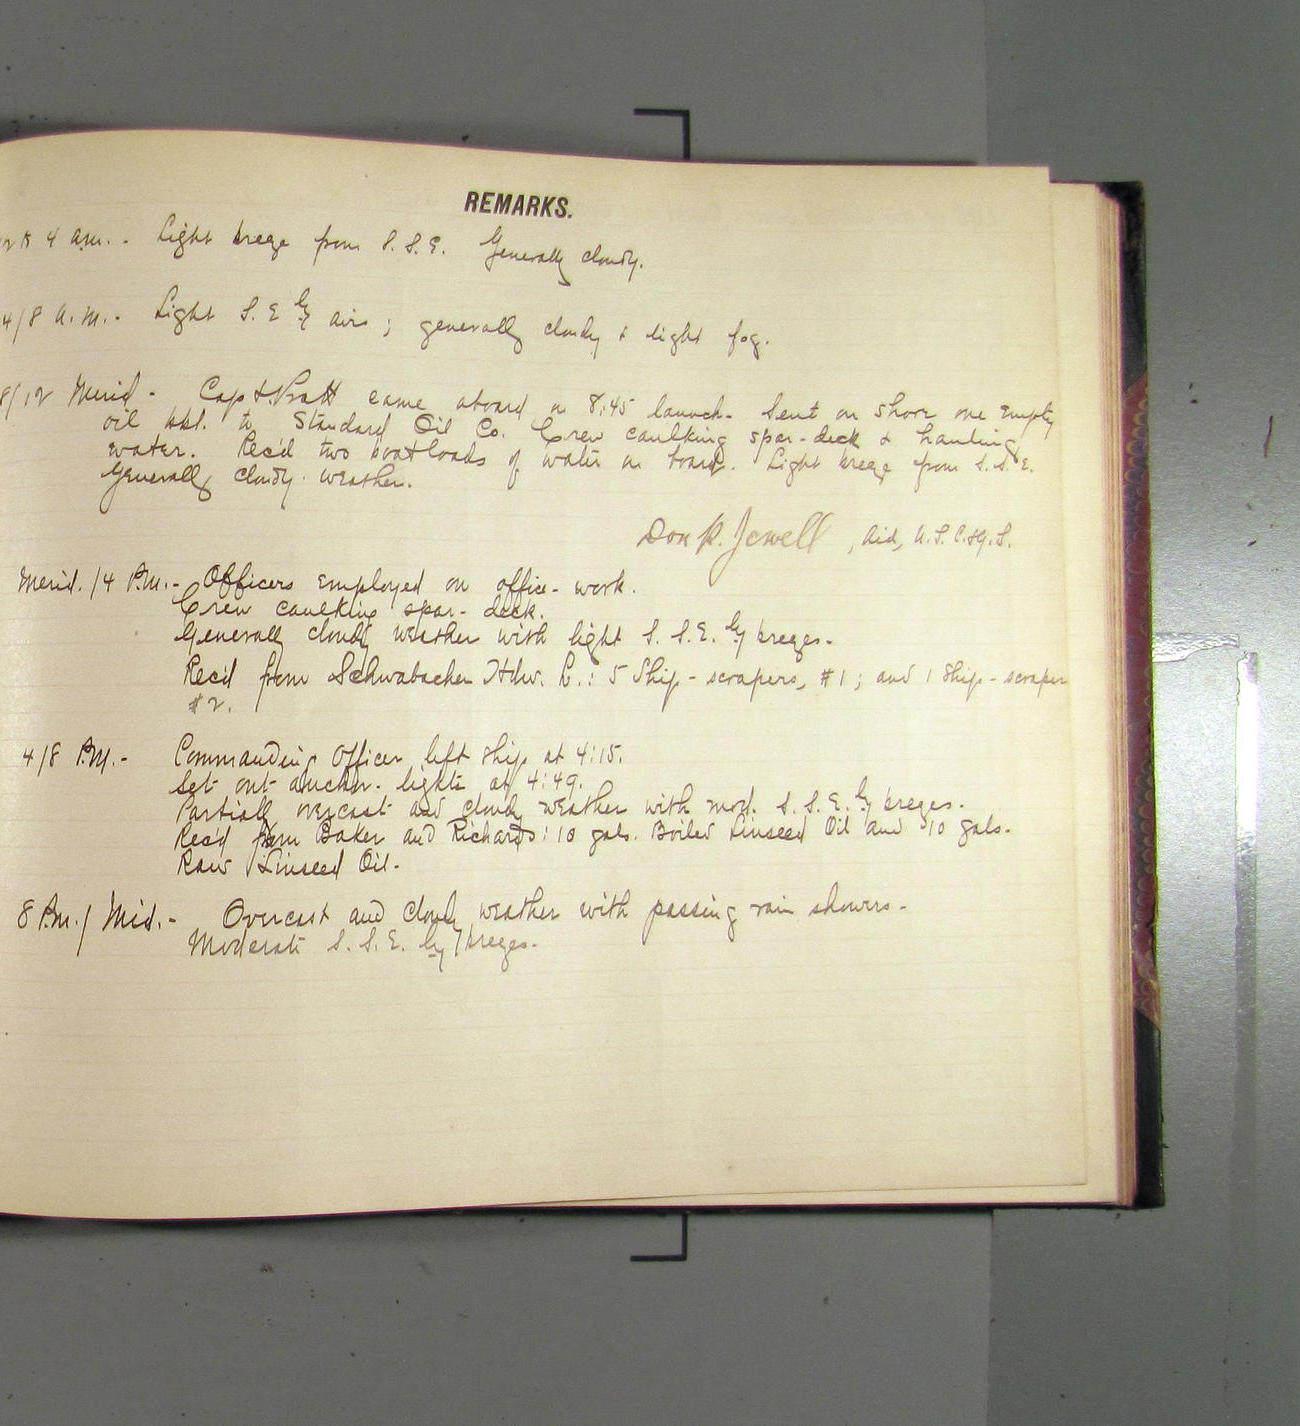 REMARKS.
to 4 a.m. - Light breeze from S. S. E. Generally cloudy.
4/8 A.M. - Light S. E ly airs ; generally cloudy & light fog.
8/12 Merid - Capt. Pratt came aboard on 8:45 launch. Sent on shore one empty
oil bbl. to Standard Oil Co. Crew caulking spar-deck & hauling
water. Rec'd two boatloads of water on board. Light breeze from S. S. E.
Generally cloudy weather.
Don R. Jewell, Aid, U. S. C. & G. S.
Merid. /4 P.M. - Officers employed on office-work.
Crew caulking spar-deck.
Generally cloudy weather with light S. S. E. ly breezes.
Rec'd from Schwabacher Hdw. Co.: 5 Ship-scrapers, #1; and 1 Ship-scraper
#2.
4/8 P.M. - Commanding Officer left ship at 4:15.
Set out anchor-lights at 4:49.
Partially overcast and cloudy weather with mod. S. S. E. ly breezes.
Rec'd from Baker and Richards: 10 gals. Boiled Linseed Oil and 10 gals.
Raw Linseed Oil.
8 P.M./ Mid. - Overcast and cloudy weather with passing rain showers.
Moderate S. S. E. ly breezes.